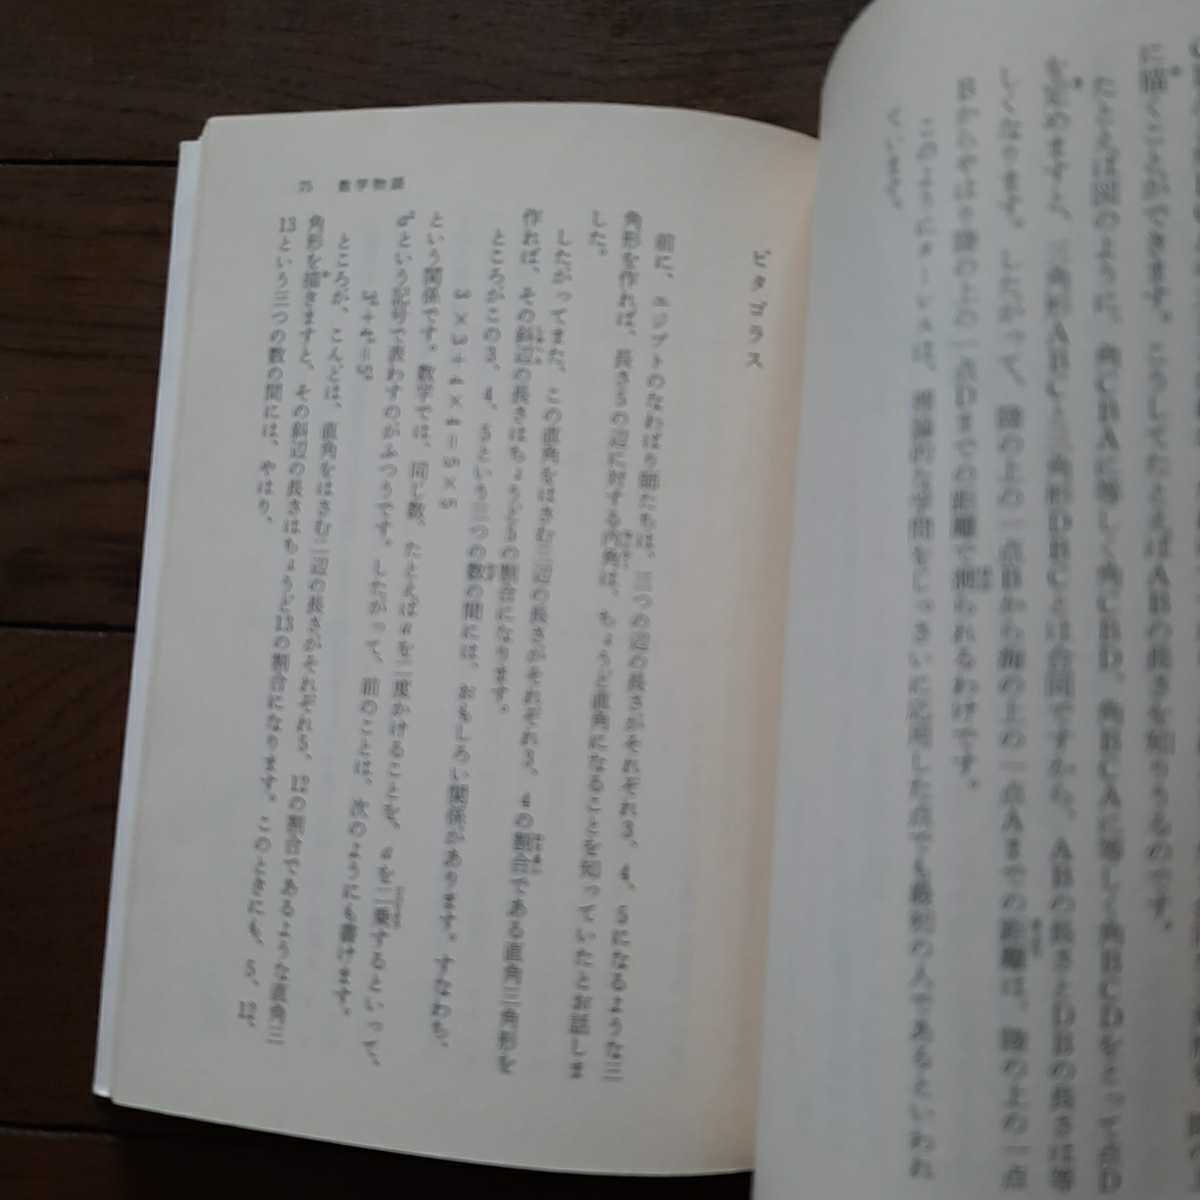 に描くことができます。こうしてたとえばABの長さを知りうるのです。
たとえば図のように、角CBAに等しく角CBD、角BCAに等しく角BCDをとって点D
を定めますと、三角形ABCと三角形DBCとは合同ですから、ABの長さとDBの長さは等
しくなります。したがって、陸の上の一点Bから海の上の一点Aまでの距離は、陸の上の一点
Bからやはり陸の上の一点Dまでの距離で測られるわけです。
このようにターレスは、理論的な学問をじっさいに応用した点でも最初の人であるといわれ
ています。
75 数学物語
ピタゴラス
前に、エジプトのなわばり師たちは、三つの辺の長さがそれぞれ3、4、5になるような三
角形を作れば、長さ5の辺に対する内角は、ちょうど直角になることを知っていたとお話しま
した。
したがってまた、この直角をはさむ二辺の長さがそれぞれ3、4の割合である直角三角形を
作れば、その斜辺の長さはちょうど5の割合になります。
ところがこの3、4、5という三つの数の間には、おもしろい関係があります。すなわち、
3×3+4×4=5×5
という関係です。数学では、同じ数、たとえばaを二度かけることを、aを二乗するといって、
a²という記号で表わすのがふつうです。したがって、前のことは、次のようにも書けます。
3²+4²=5²
ところが、こんどは、直角をはさむ二辺の長さがそれぞれ5、12の割合であるような直角三
角形を描きますと、その斜辺の長さはちょうど13の割合になります。このときにも、5、12、
13という三つの数の間には、やはり、